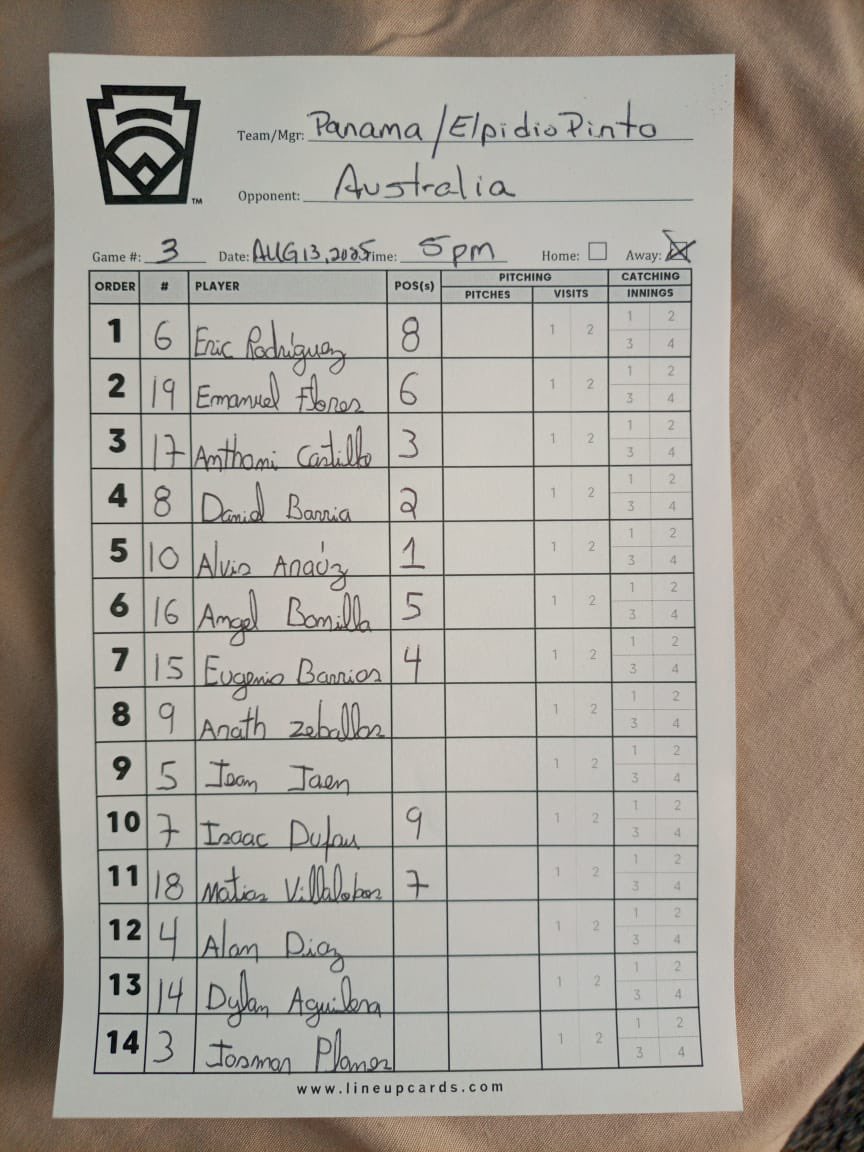 TM
Team/Mgr: Panama/Elpidio Pinto
Opponent: Australia
Game #: 3 Date: AUG 13, 2025 Time: 5pm Home: Away:
ORDER # PLAYER POS(s) PITCHING CATCHING
PITCHES VISITS INNINGS
1 6 Eric Rodríguez 8 1 2 1 2 3 4
2 19 Emanuel Flores 6 1 2 1 2 3 4
3 17 Anthoni Castillo 3 1 2 1 2 3 4
4 8 Daniel Barria 2 1 2 1 2 3 4
5 10 Alvis Araúz 1 1 2 1 2 3 4
6 16 Angel Bonilla 5 1 2 1 2 3 4
7 15 Eugenio Barrios 4 1 2 1 2 3 4
8 9 Arath Zeballos 1 2 1 2 3 4
9 5 Jean Jaen 1 2 1 2 3 4
10 7 Isaac Dufau 9 1 2 1 2 3 4
11 18 Matias Villalobos 7 1 2 1 2 3 4
12 4 Alan Diaz 1 2 1 2 3 4
13 14 Dylan Aguilera 1 2 1 2 3 4
14 3 Josmar Planes 1 2 1 2 3 4
www.lineupcards.com